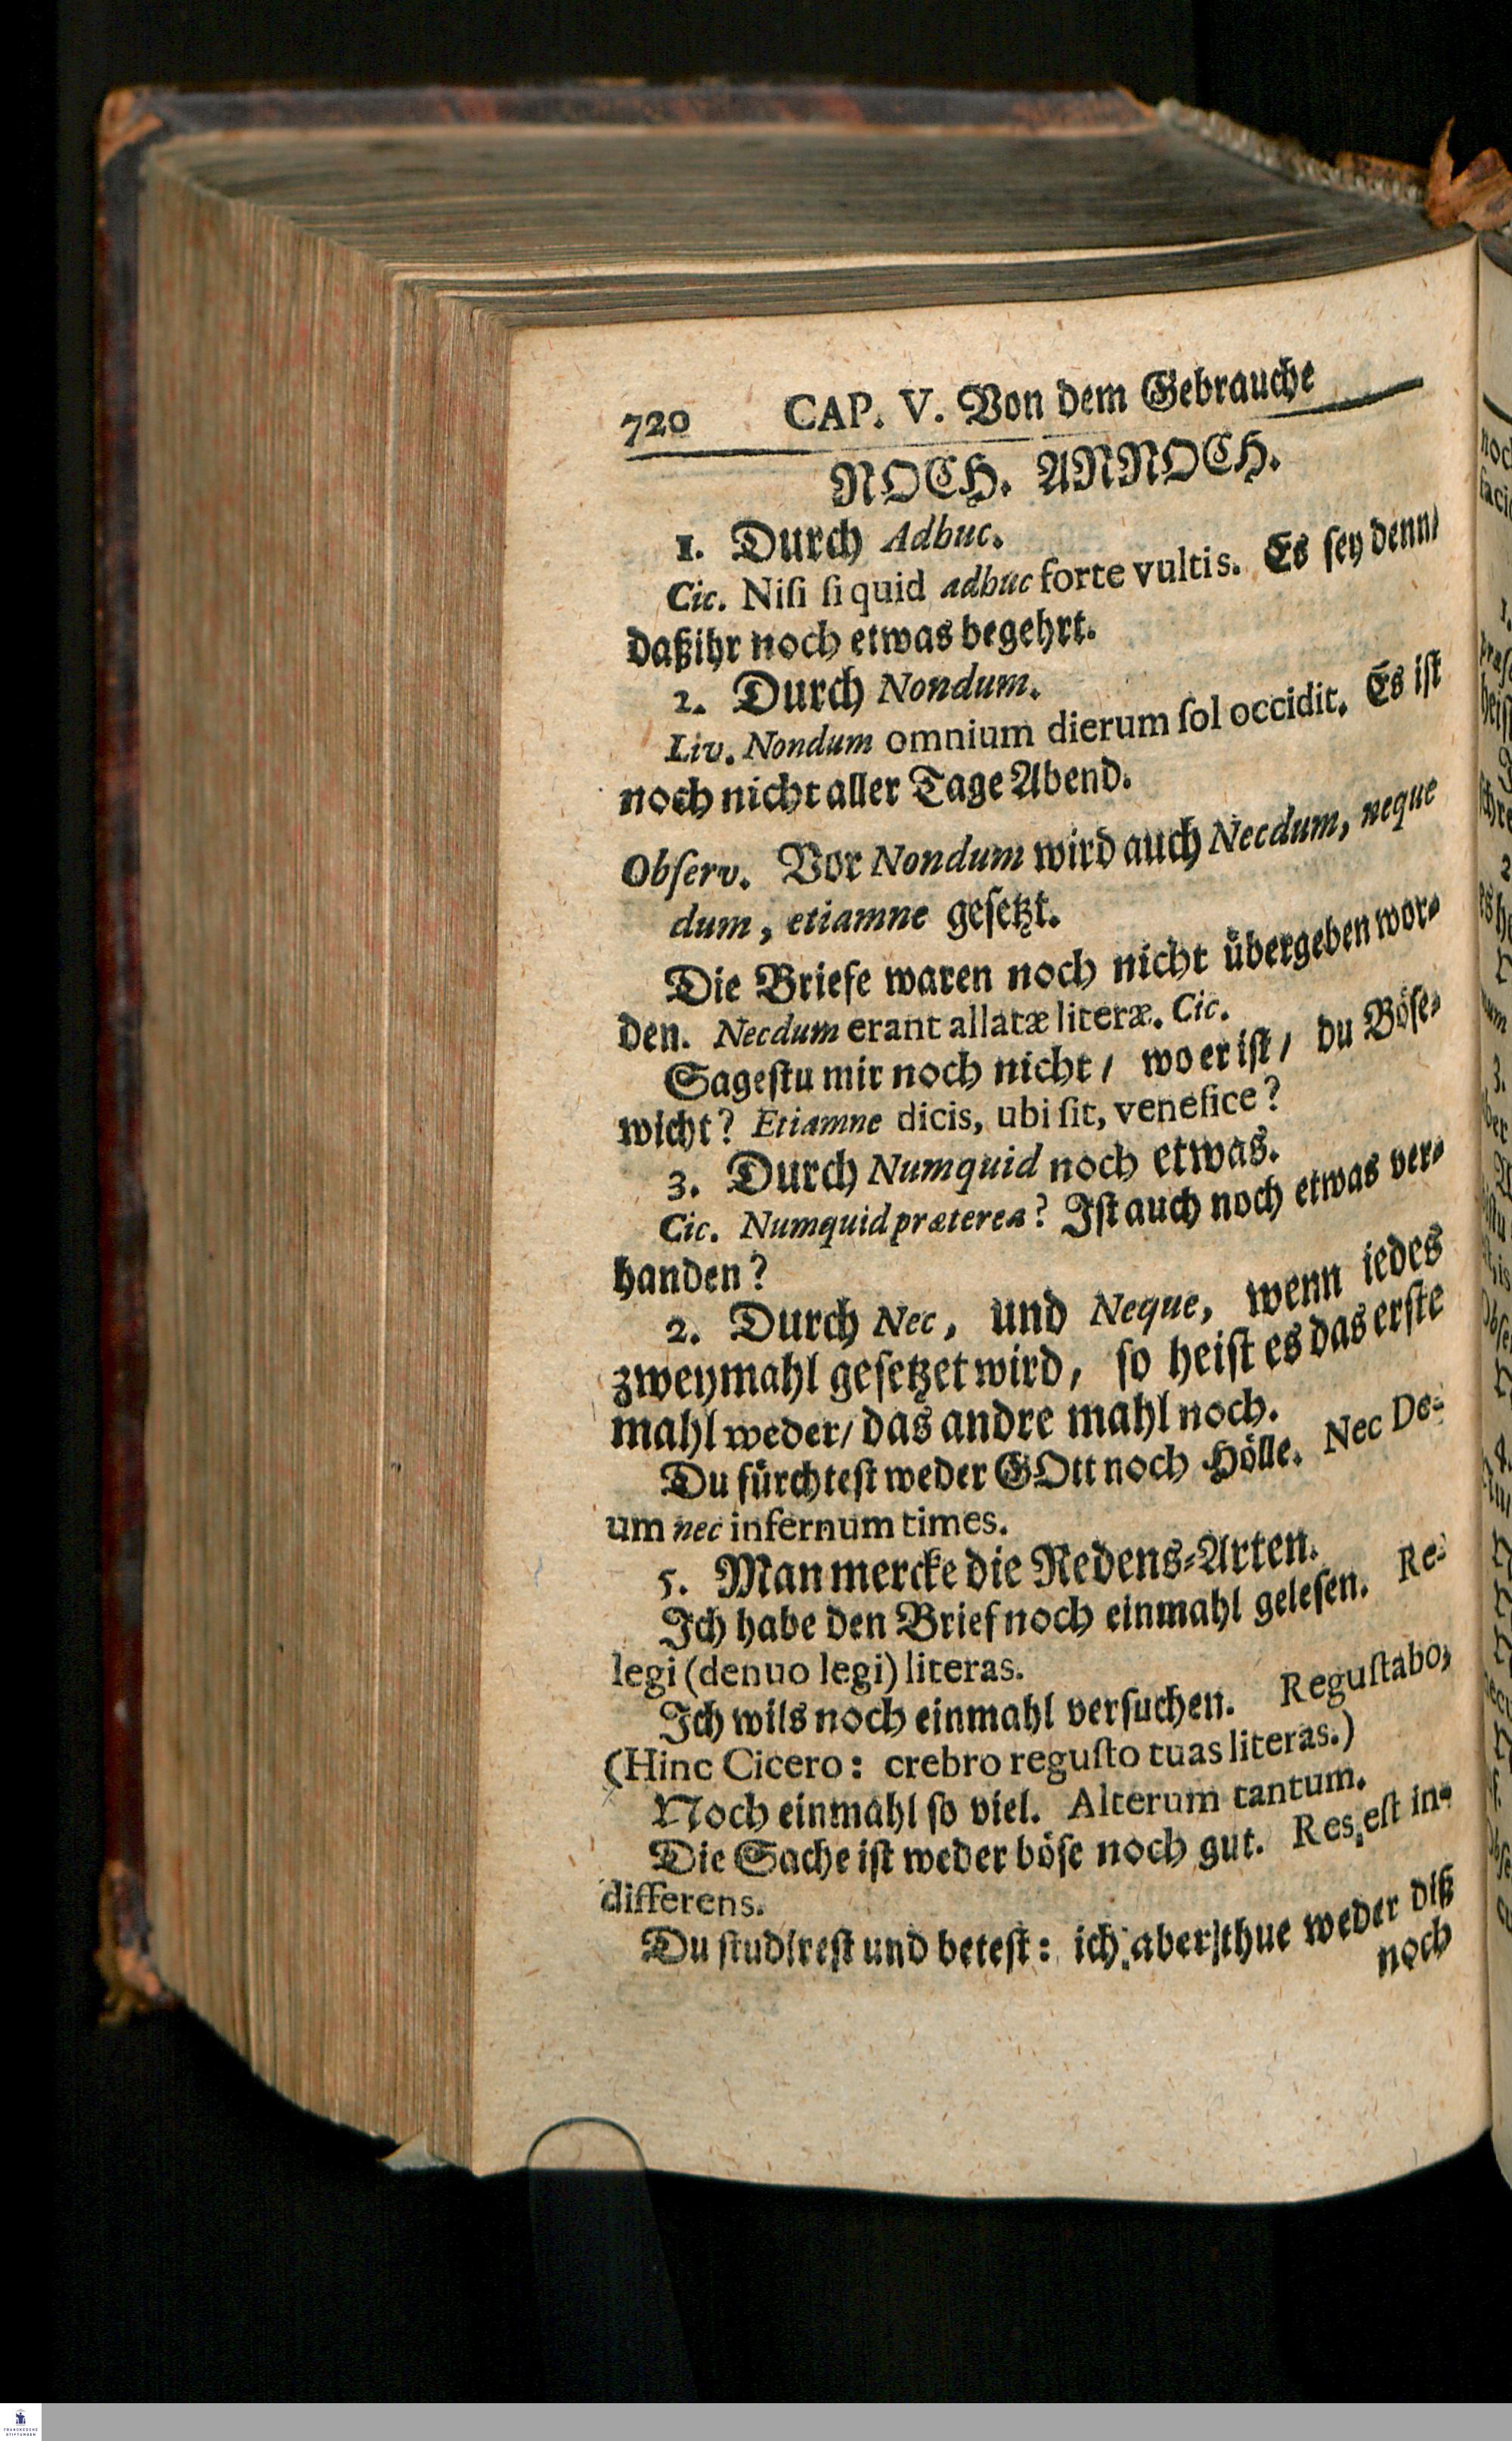 720 CAP. V. Von dem Gebrauche
NOCH. ANNOCH.
1. Durch Adhuc.
Cic. Niſi ſi quid adhuc forte vultis. Es ſey denn/
daß ihr noch etwas begehrt.
2. Durch Nondum.
Liv. Nondum omnium dierum ſol occidit. Es iſt
noch nicht aller Tage Abend.
Obſerv. Vor Nondum wird auch Necdum, neque
dum, etiamne geſetzt.
Die Briefe waren noch nicht übergeben wor⸗
den. Necdum erant allatæ literæ. Cic.
Sageſtu mir noch nicht / wo er iſt / du Böſe⸗
wicht? Etiamne dicis, ubi ſit, venefice?
3. Durch Numquid noch etwas.
Cic. Numquid præterea? Iſt auch noch etwas ver⸗
handen?
2. Durch Nec, und Neque, wenn iedes
zweymahl geſetzet wird, ſo heiſt es das erſte
mahl weder/ das andre mahl noch.
Du fürchteſt weder GOtt noch Hölle. Nec De-
um nec infernum times.
5. Man mercke die Redens⸗Arten.
Ich habe den Brief noch einmahl geleſen. Re-
legi (denuo legi) literas.
Ich wils noch einmahl verſuchen. Reguſtabo,
(Hinc Cicero: crebro reguſto tuas literas.)
Noch einmahl ſo viel. Alterum tantum.
Die Sache iſt weder böſe noch gut. Res eſt in-
differens.
Du ſtudireſt und beteſt: ich aber thue weder diß
noch